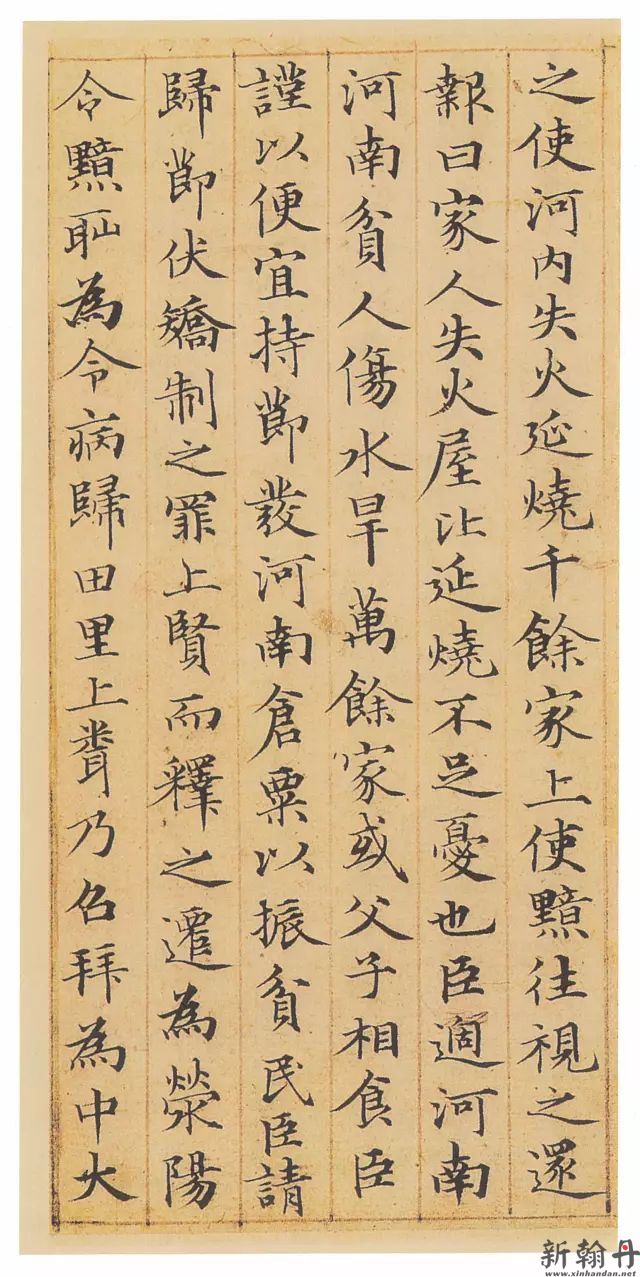 之使河内失火延燒千餘家上使黯往視之還
報曰家人失火屋比延燒不足憂也臣過河南
河南貧人傷水旱萬餘家或父子相食臣
謹以便宜持節發河南倉粟以振貧民臣請
歸節伏矯制之罪上賢而釋之遷為滎陽
令黯恥為令病歸田里上聞乃召拜為中大
新翰丹
www.xinhandan.net